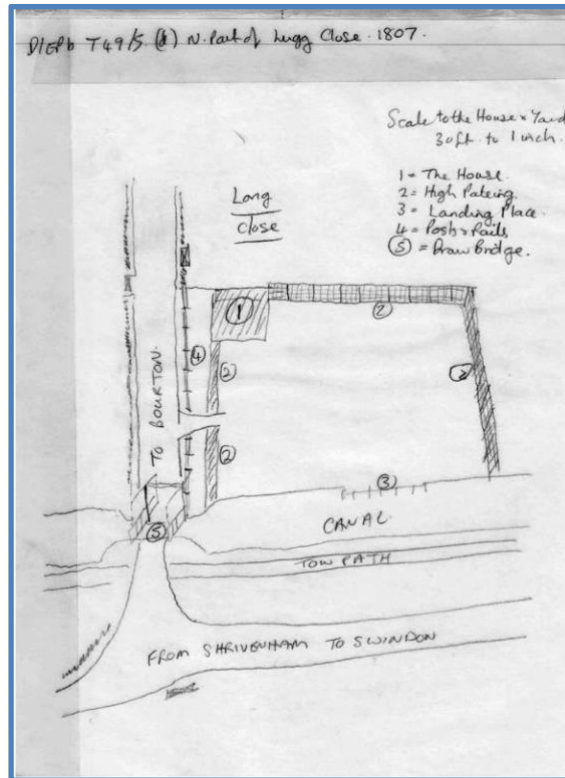 D/EPb T49/5 (1) N. Part of Lugg Close. 1807.
Scale to the House & Yard
30ft. to 1 inch.
1 = The House.
2 = High Pateing
3 = Landing Place.
4 = Posts & Rails
5 = Draw Bridge.
Long
Close
1
2
4
2
2
2
TO BOURTON.
3
5
CANAL
TOW PATH
FROM SHRIVENHAM TO SWINDON